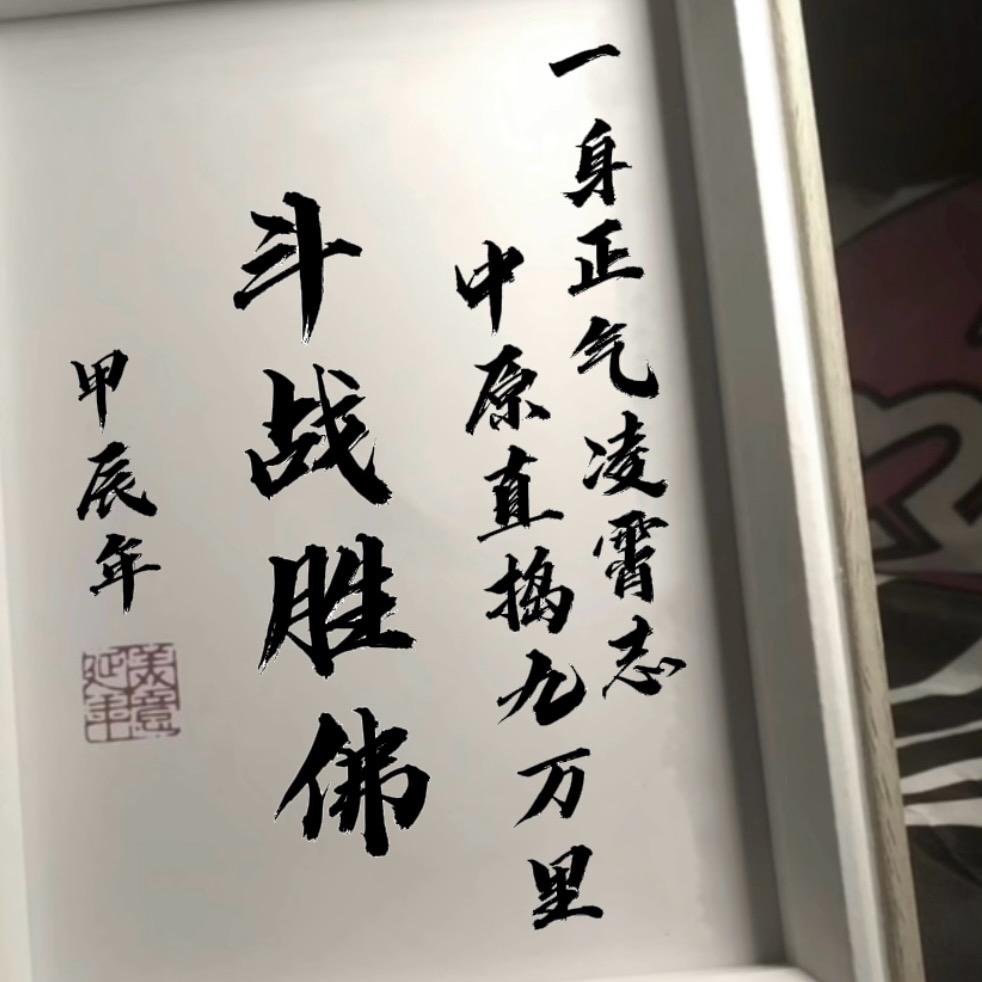 一身正气凌霄志
中原直捣九万里
斗战胜佛
甲辰年
美意延年